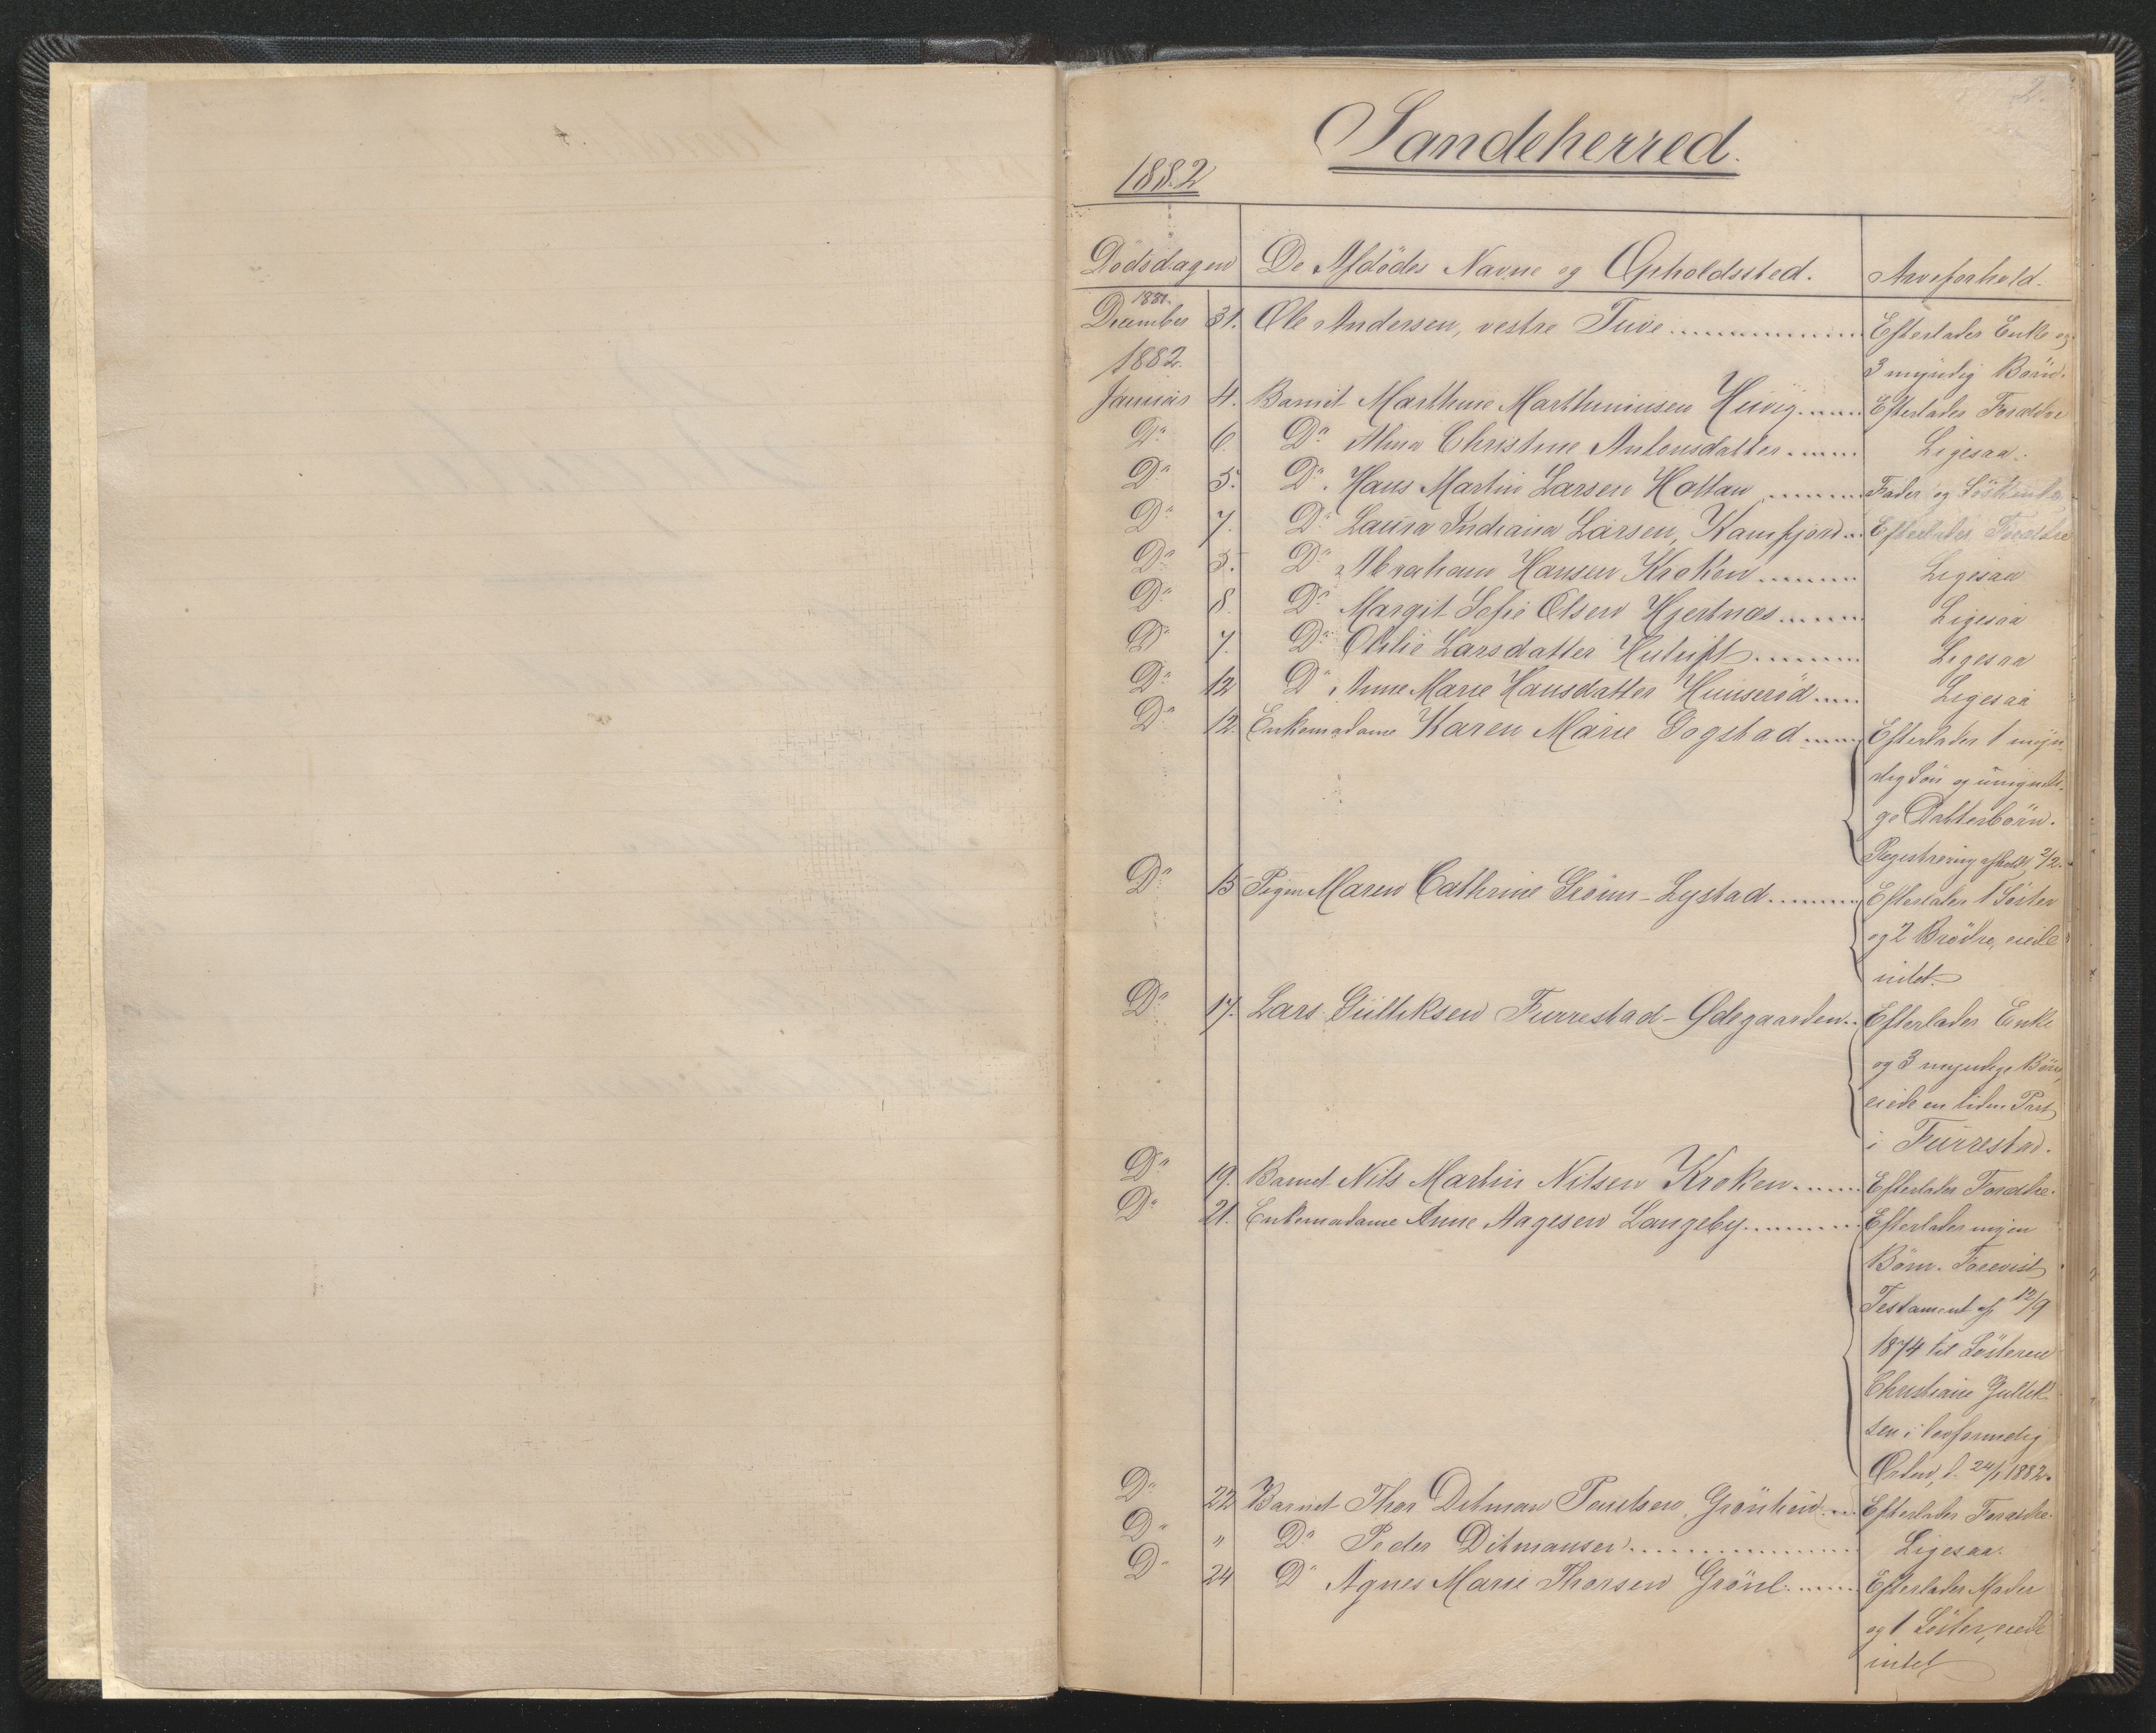 2.
Sandeherred.
1882
Dødsdagen De Afdødes Navne og Opholdssted. Arveforhold.
1881.
December 31. Ole Andersen, vestre Tuve Efterlader Enke og
1882. 3 myndig Børn.
Januar 4. Barnet Marthine Marthiniusen Huvig Efterlader Forældre
Do 6. Do Alma Christine Antonsdatter Ligesaa.
Do 5. Do Hans Martin Larsen Holtan Fader og Søskende
Do 7. Do Laura Indiana Larsen, Kamfjord Efterlader Forældre
Do 5. Do Abraham Hansen Kroken Ligesaa
Do 8. Do Margit Sofie Olsen Hjertnæs Ligesaa
Do 7. Do Otilie Larsdatter Ligesaa
Do 12 Do Anne Marie Hansdatter Ligesaa
Do 12. Enkemadame Karen Marie Gogstad Efterlader 1 myn-
dig Søn og umyndi-
ge Datterbørn.
Registrering afholdt 2/2.
Do 15 Pigen Maren Cathrine Lystad Efterlader 1 Søster
og 2 Brødre, eiede
intet
Do 17. Lars Gulliksen Furrestad-Ødegaarden Efterlader Enke
og 3 myndige Børn,
eiede en liden Part
i Furrestad.
Do 19. Barnet Nils Martin Nilsen Kroken Efterlader Forældre.
Do 21. Enkemadame Anne Aagesen Langeby Efterlader ingen
Børn. Forevist
Testament af 12/9
1874 til Søsteren
Christiane Gullik-
sen i lovformelig
Orden, d. 24/1 1882.
Do 22 Barnet Thor Ditman Efterlader Forældre.
Do " Do Peder Ditmansen Ligesaa.
Do 24 Do Agnes Marie Thorsen Grønl. Efterlader Moder
og 1 Søster, eiede
intet